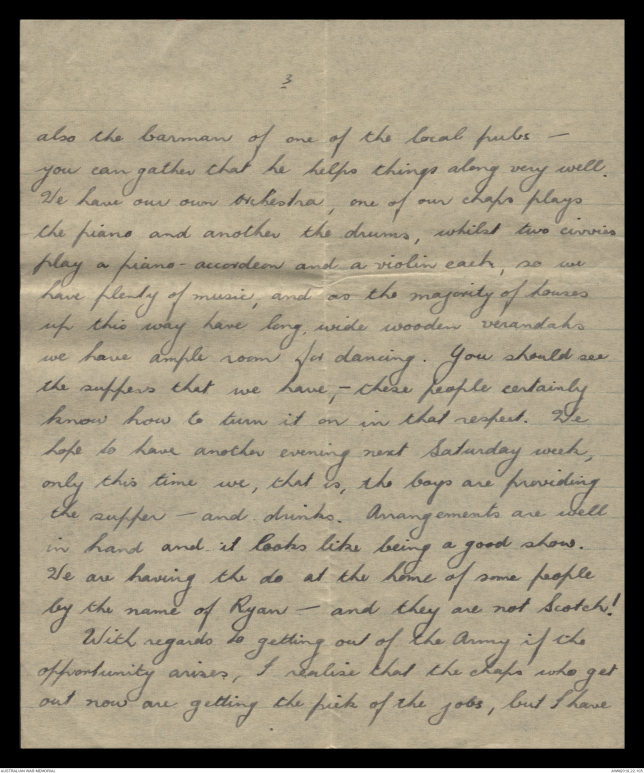 3
also the barman of one of the local pubs —
you can gather that he helps things along very well.
We have our own Orchestra, one of our chaps plays
the piano and another the drums, whilst two civvies
play a piano-accordeon and a violin each, so we
have plenty of music, and as the majority of houses
up this way have long, wide wooden verandahs
we have ample room for dancing. You should see
the suppers that we have, – these people certainly
know how to turn it on in that respect. We
hope to have another evening next Saturday week,
only this time we, that is, the boys are providing
the supper — and drinks. Arrangements are well
in hand and it looks like being a good show.
We are having the do at the home of some people
by the name of Ryan — and they are not Scotch!
With regards to getting out of the Army if the
opportunity arises, I realise that the chaps who get
out now are getting the pick of the jobs, but I have
AUSTRALIAN WAR MEMORIAL